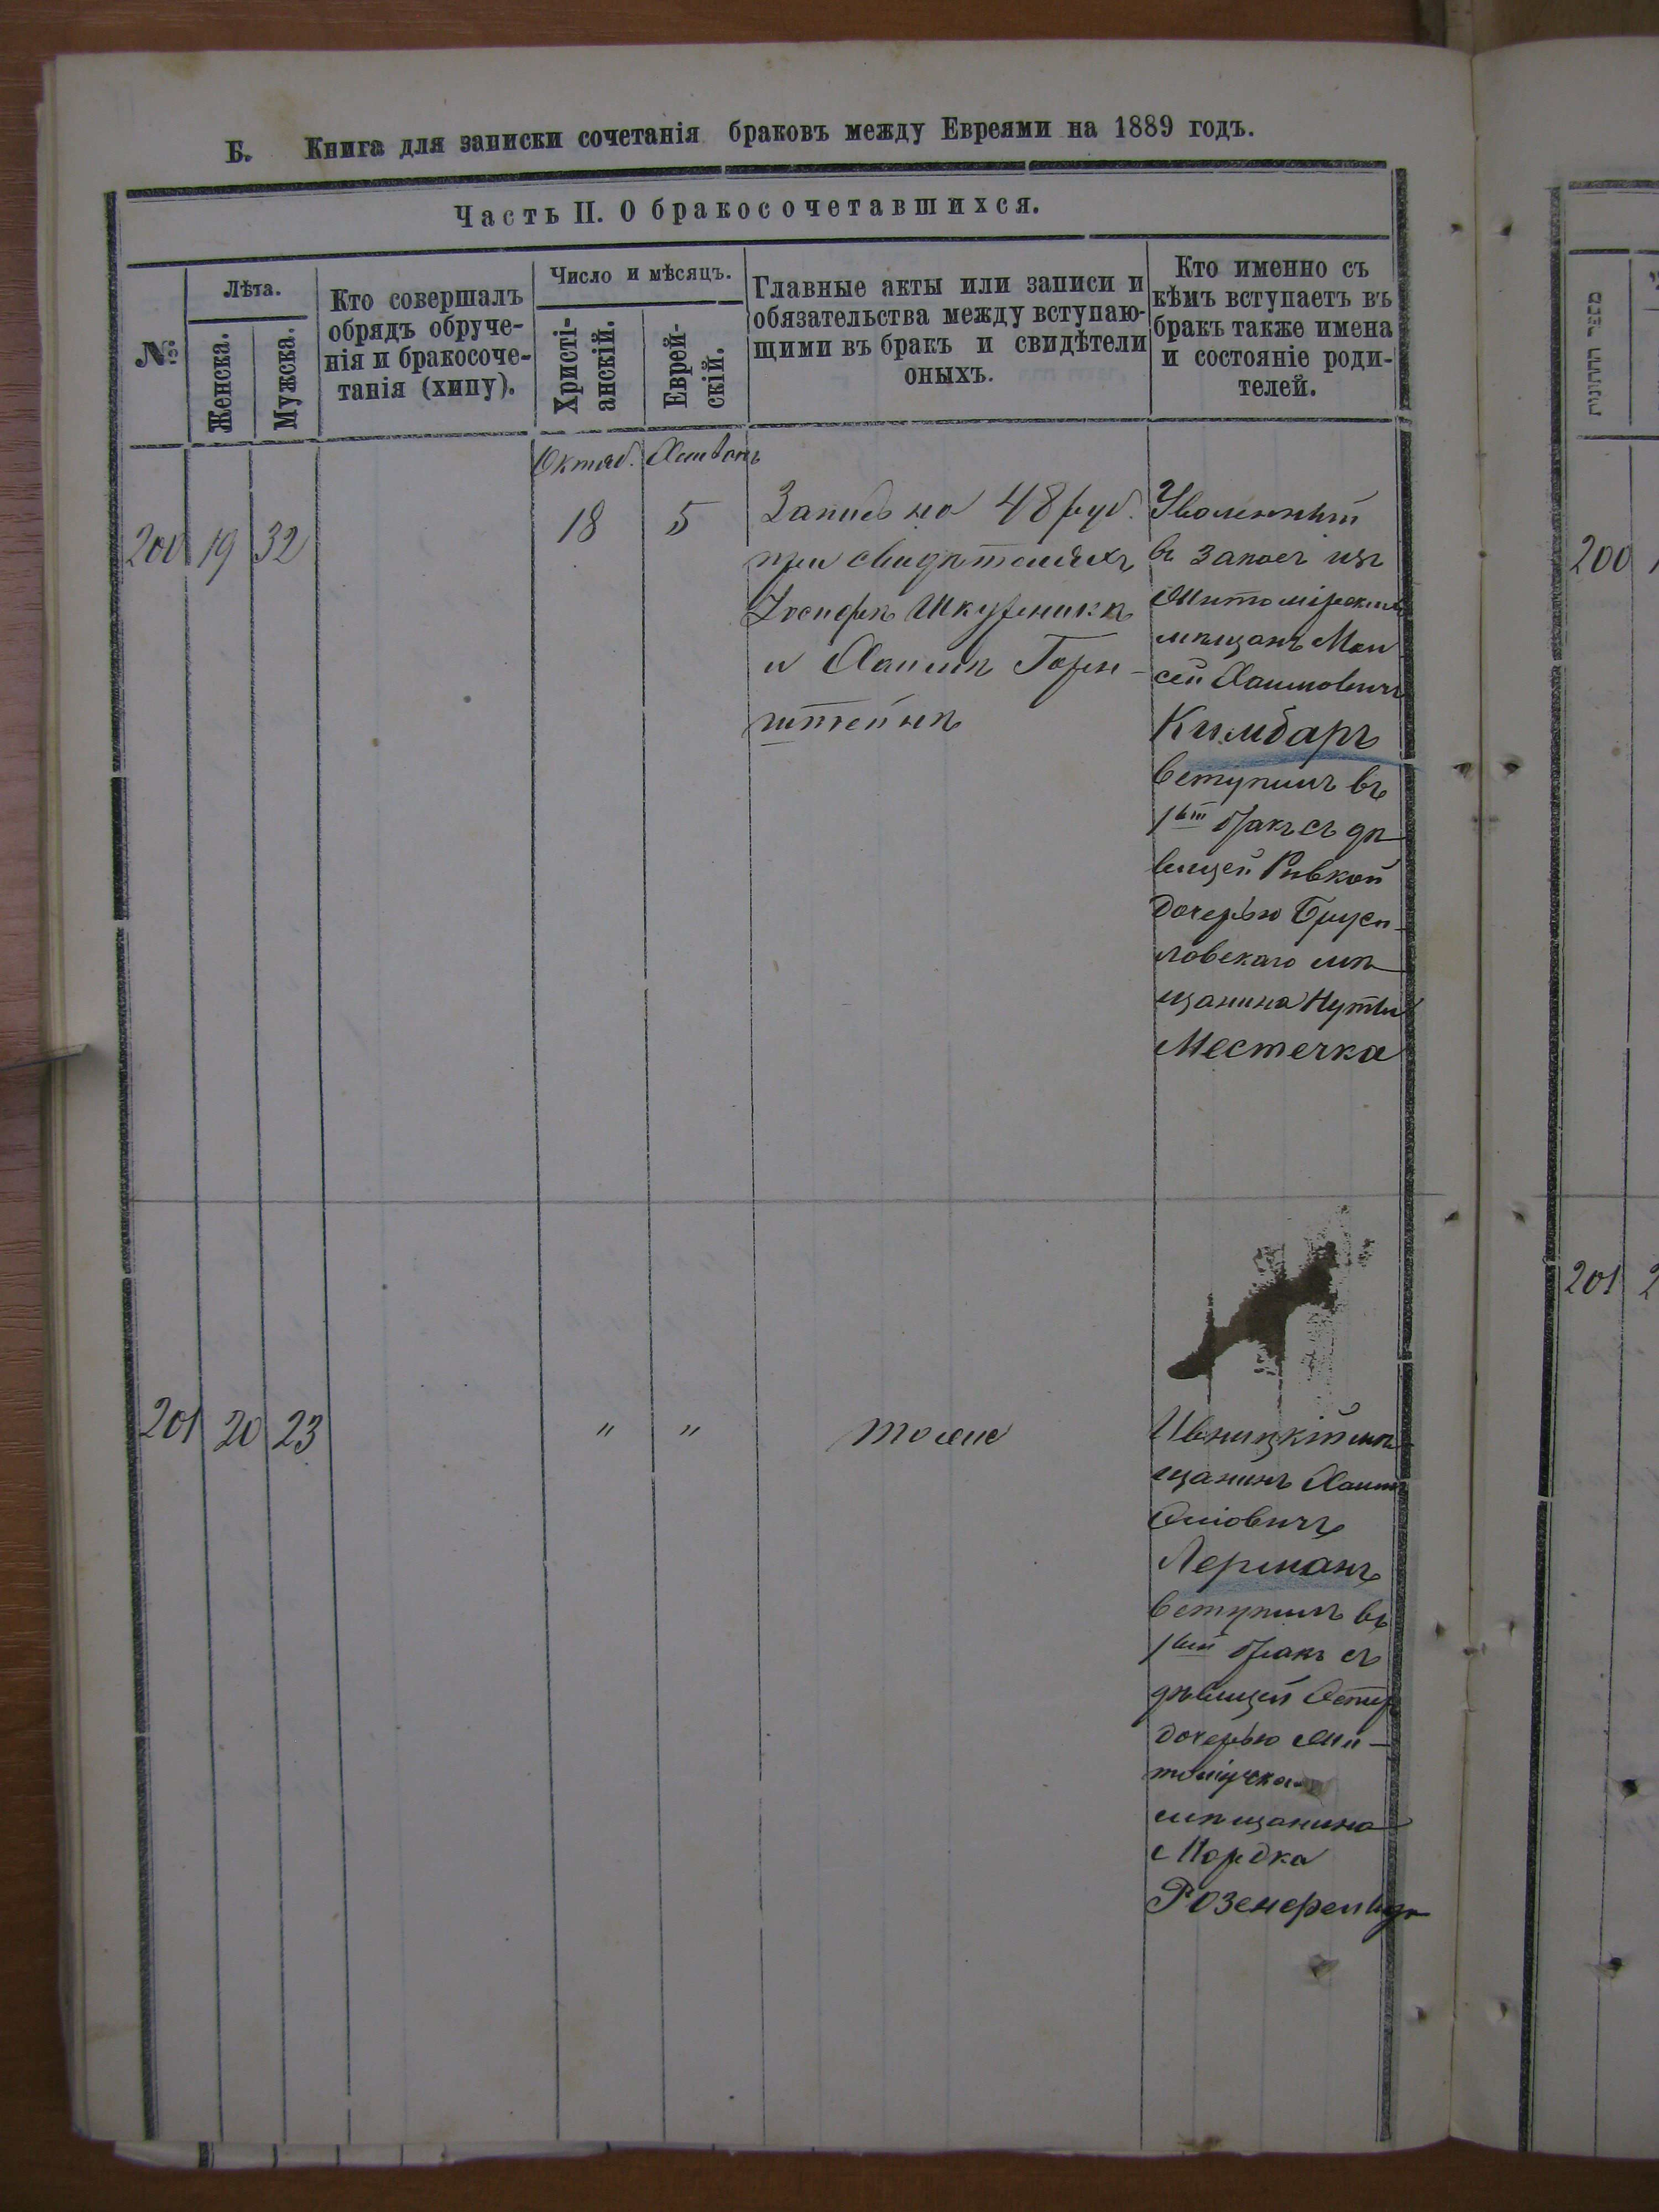 Б. Книга для записки сочетанія браковъ между Евреями на 1889 годъ.
Часть II. О бракосочетавшихся.
№
Лѣта.
Женска.
Мужска.
Кто совершалъ
обрядъ обруче-
нія и бракосоче-
танія (хипу).
Число и мѣсяцъ.
Христі-
анскій.
Еврей-
скій.
Главные акты или записи и
обязательства между вступаю-
щими въ бракъ и свидѣтели
оныхъ.
Кто именно съ
кѣмъ вступаетъ въ
бракъ также имена
и состояніе роди-
телей.
Октяб. Хешвонъ
200 19 32 18 5
Запись на 48 руб.
при свидѣтеляхъ
Іосифѣ Шкурникѣ
и Хаимѣ Горен-
штейнѣ
Уволенный
въ запасъ изъ
Житомірскихъ
мѣщанъ Мои
сей Хаимовичъ
Кимбаръ
вступилъ въ
1ый бракъ съ дѣ
вицей Ривкой
дочерью Бруси-
ловскаго мѣ
щанина
Местечка
201 20 23 " "
тоже
Ивницкій мѣ
щанинъ Хаимъ
Лерманъ
вступилъ въ
1ый бракъ съ
дѣвицей
дочерью Жи-
мѣщанина
Мордка
Розенфельда
מספר החתונות
200
201 2